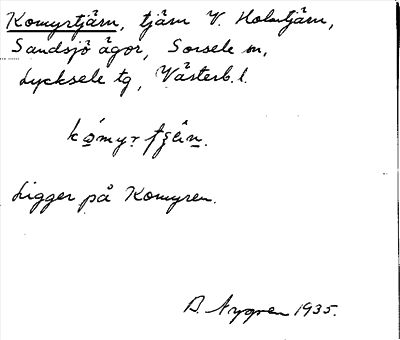 Komyrtjärn, tjärn V. Holmtjärn,
Sandsjö ägor, Sorsele sn,
Lycksele tg, Västerb. l.
Ligger på Komyren.
D. Nygren 1935.